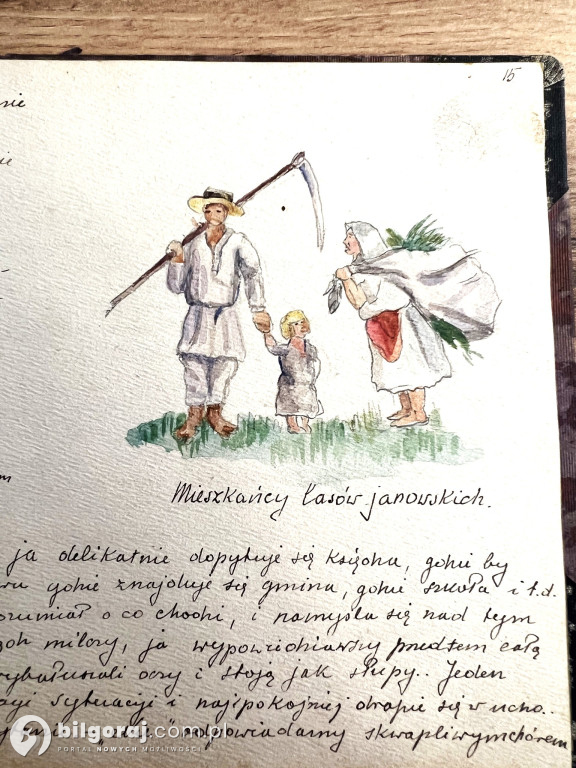 15
Mieszkańcy lasów janowskich.
ja delikatnie dopytuję się księdza, gdzie by
gdzie znajduje się gmina, gdzie szkoła i t.d.
o co chodzi, i namyśla się nad tym
milczy, ja wypowiedziawszy przedtem całą
oczy i stoją jak słupy.. Jeden
sytuacji i najspokojniej drapie się w ucho..
odpowiadamy skwapliwym chórem
bilgoraj.com.pl
PORTAL NOWYCH MOŻLIWOŚCI